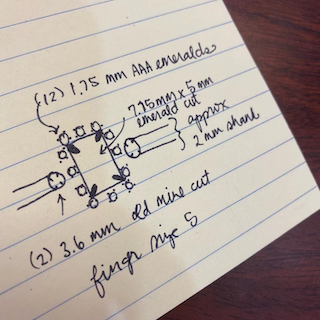 (12) 1.75 mm AAA emeralds
7.75mm x 5mm
emerald cut
approx
2 mm shank
(2) 3.6 mm old mine cut
finger size 5